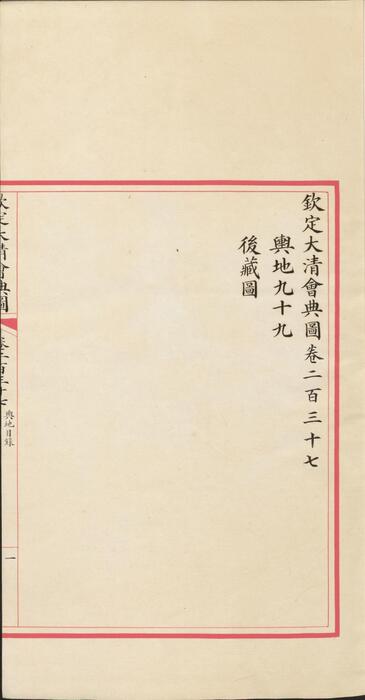 欽定大清會典圖卷二百三十七
輿地九十九
後藏圖
欽定大清會典圖
卷二百三十七
輿地目錄
一